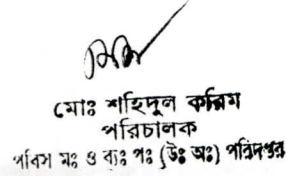 মোঃ শহিদুল করিম
পরিচালক
পবিস মঃ ও ব্যঃ পঃ (উঃ অঃ) পরিদপ্তর